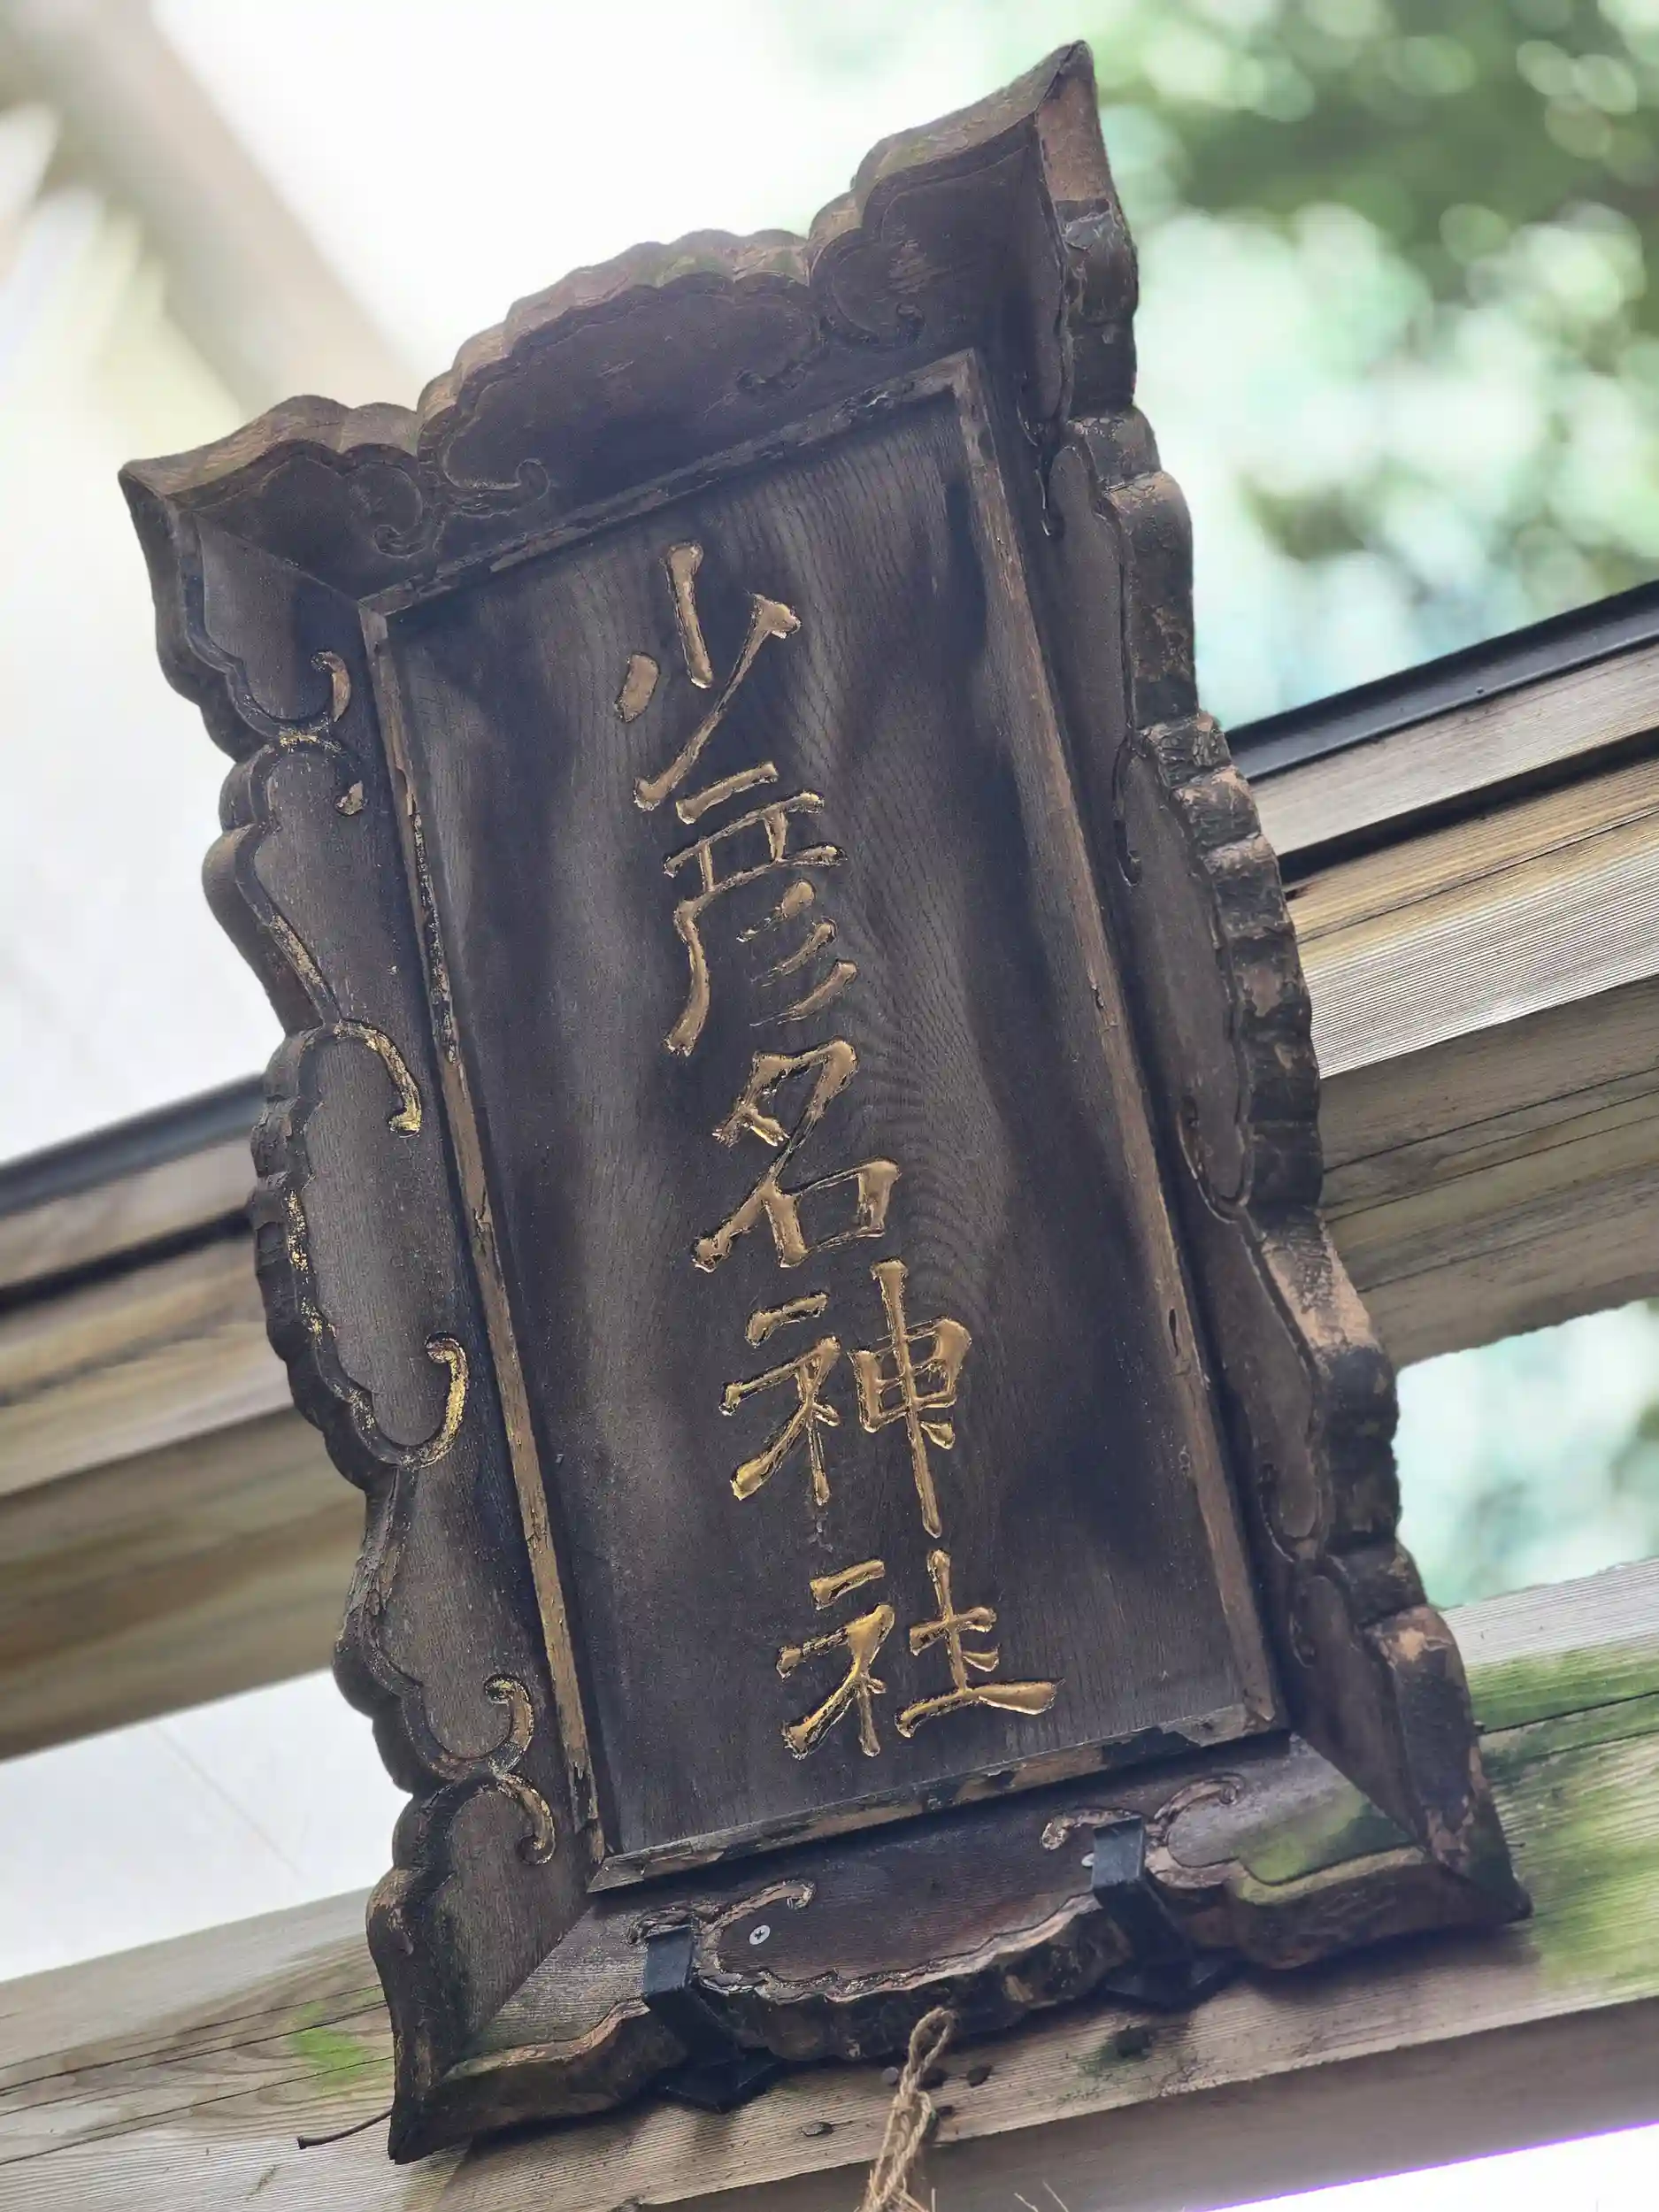 少彦名神社